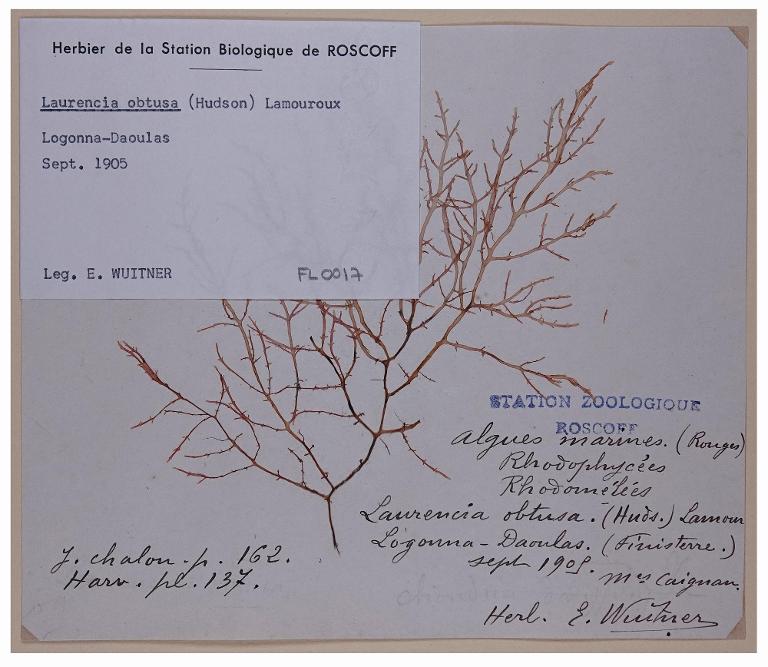 Herbier de la Station Biologique de ROSCOFF
Laurencia obtusa (Hudson) Lamouroux
Logonna-Daoulas
Sept. 1905
Leg. E. WUITNER
FL0017
STATION ZOOLOGIQUE
ROSCOFF
Algues marines. (Rouges)
Rhodophycées
Rhodomélées
Laurencia obtusa. (Huds.) Lamour
Logonna-Daoulas. (Finistère.)
sept 1905.
Mes Caignan.
Herl. E. Wuitner
J. chalon. p. 162.
Harv. pl. 137.